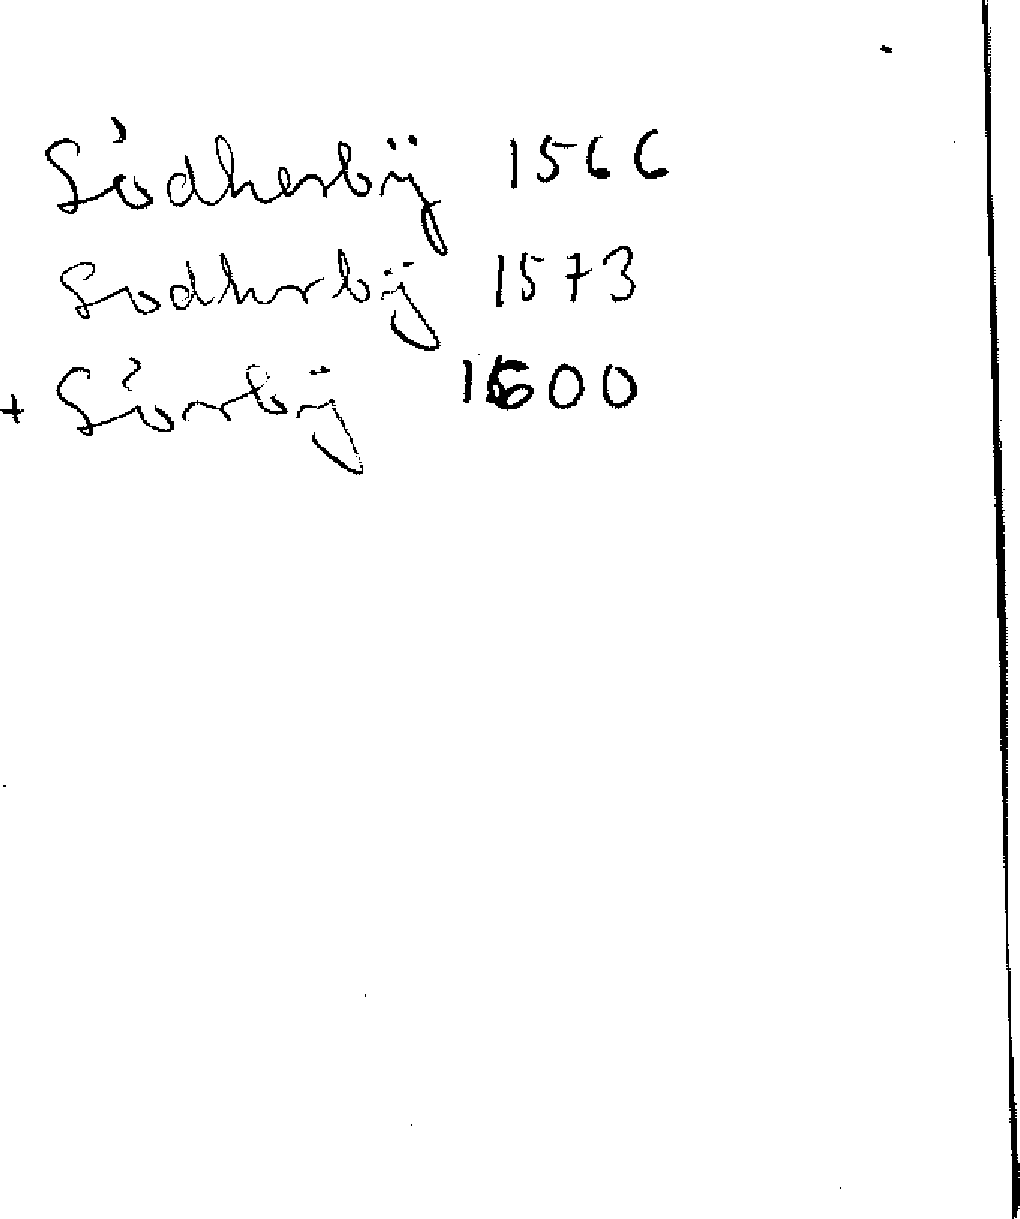 Södherbÿ 1566
Sodherbÿ 1573
+ Sörbÿ 1600